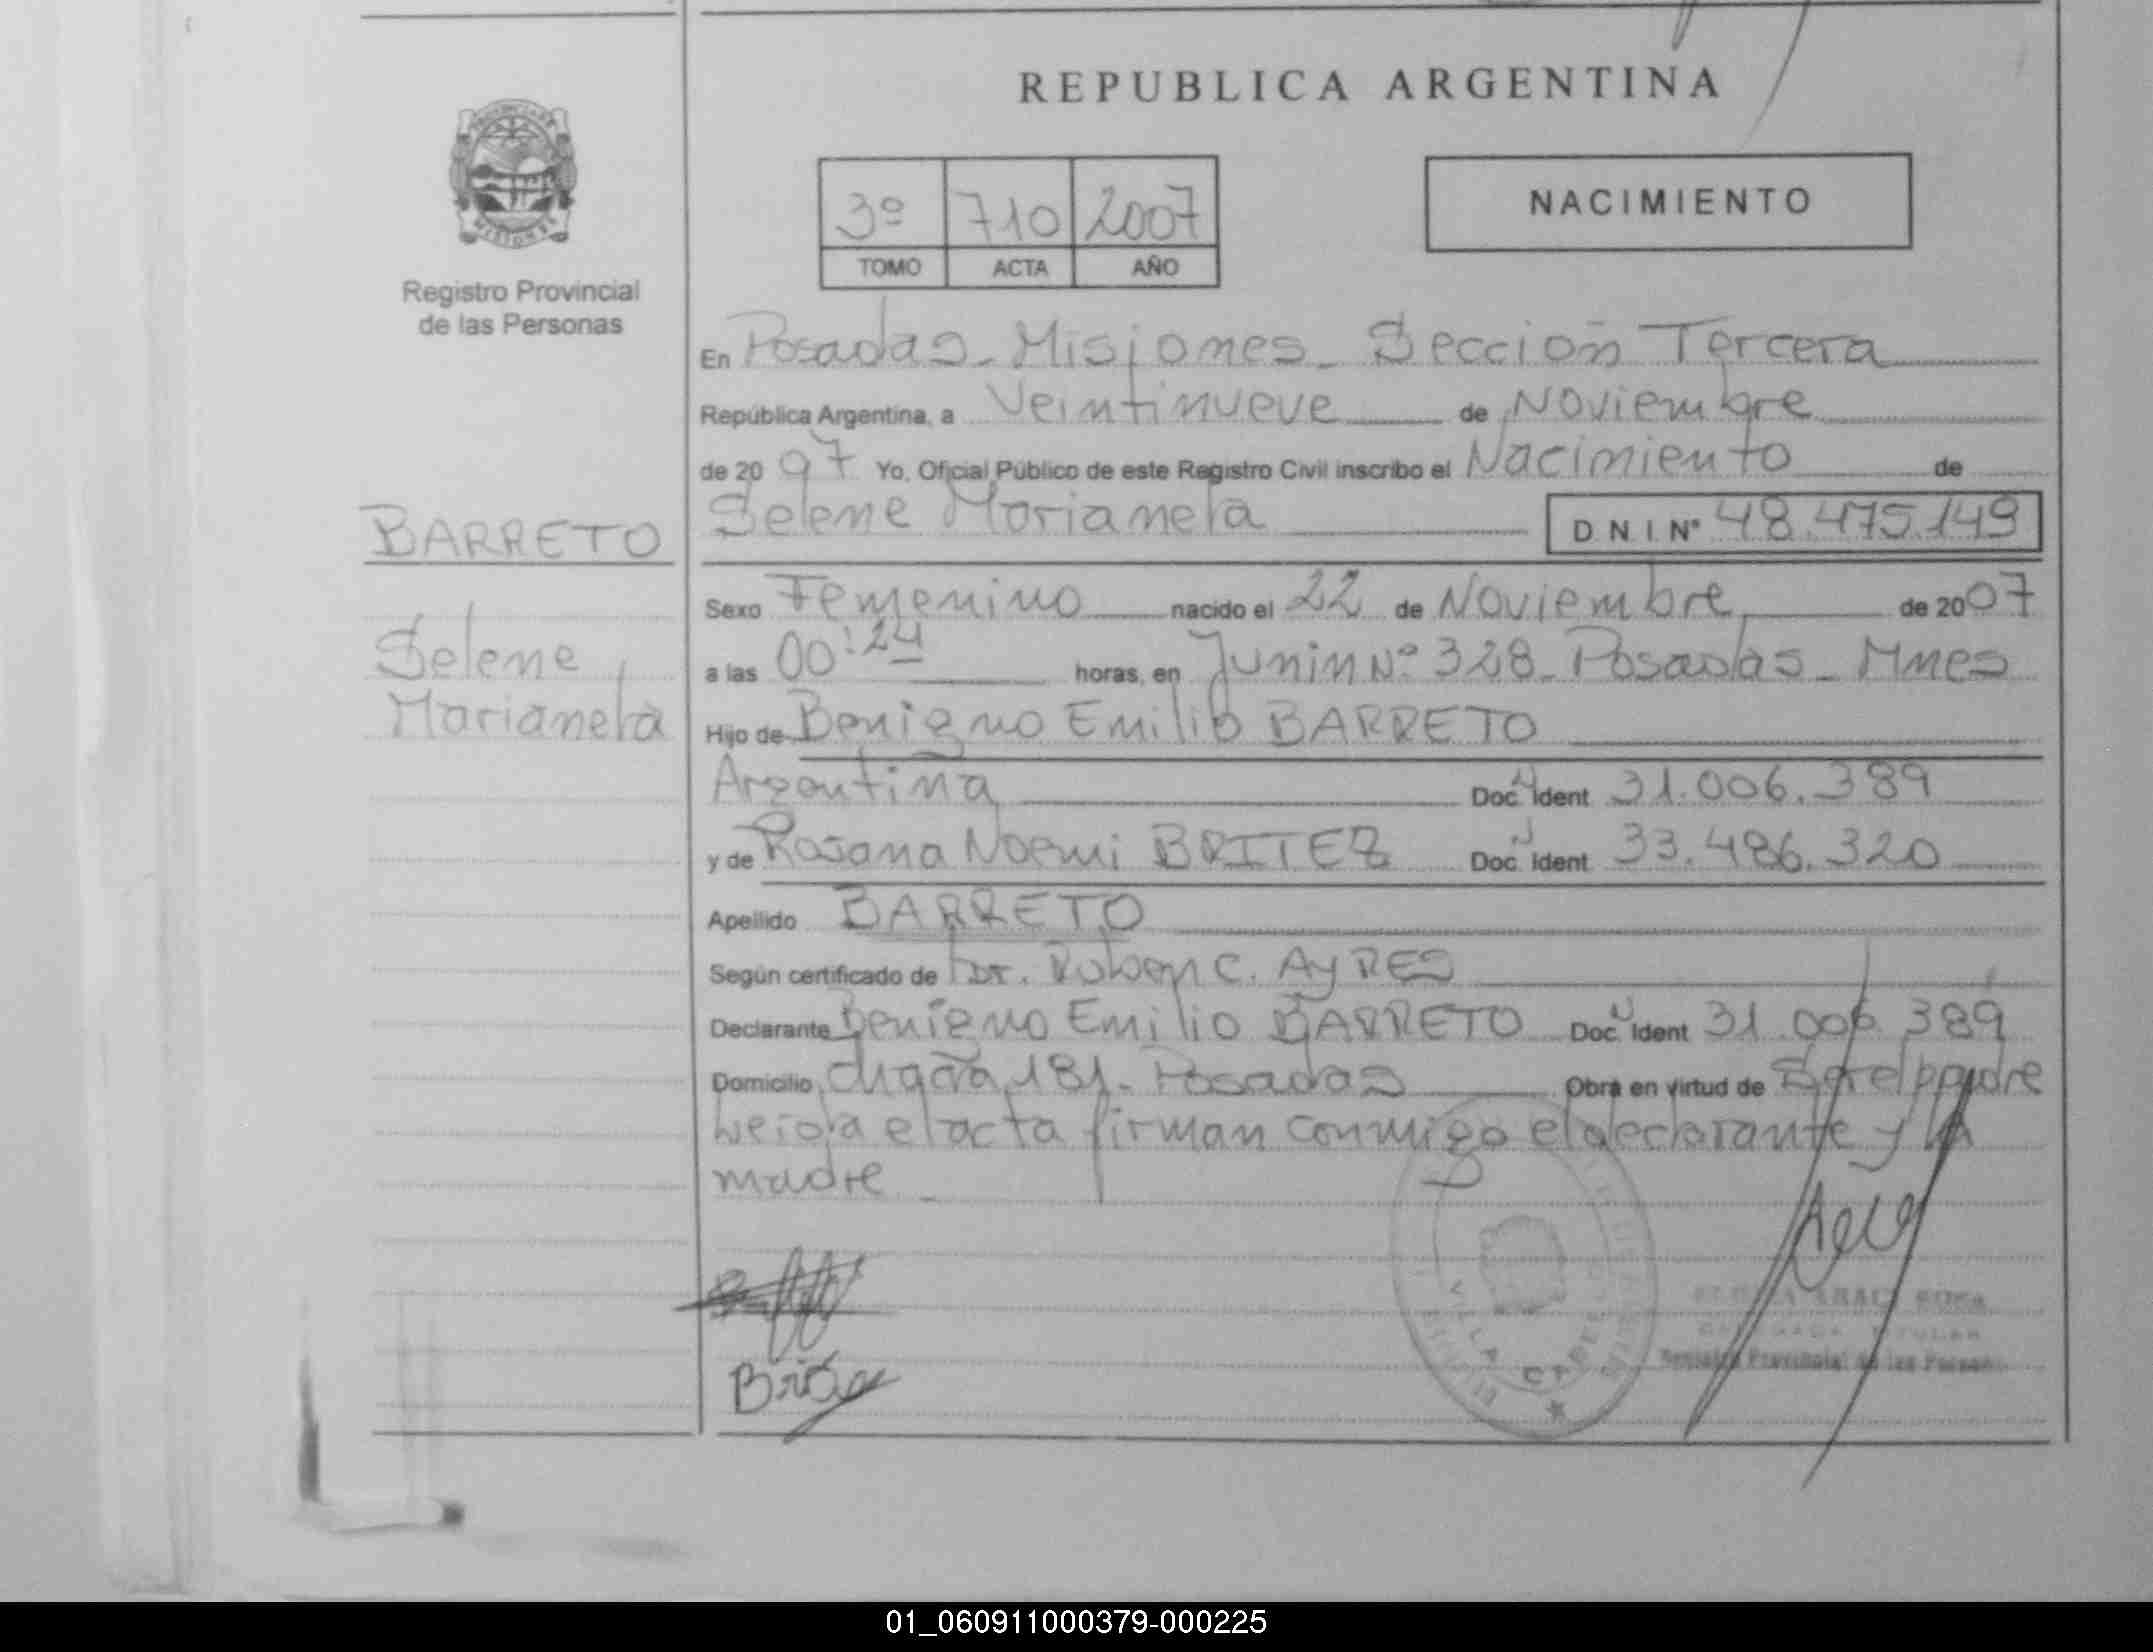 REPUBLICA ARGENTINA
3º 710 2007
TOMO ACTA AÑO
NACIMIENTO
Registro Provincial
de las Personas
En Posadas - Misiones - Sección Tercera
República Argentina, a Veintinueve de Noviembre
de 20 07 Yo, Oficial Público de este Registro Civil inscribo el Nacimiento de
BARRETO
Selene Marianela D.N.I. Nº 48.475.149
Sexo Femenino nacido el 22 de Noviembre de 2007
Selene
Marianela
a las 00:24 horas, en Junin Nº 328 - Posadas - Mnes
Hijo de Benigno Emilio BARRETO
Argentina Doc. Ident 31.006.389
y de Rosana Noemi BRITEZ Doc. Ident 33.486.320
Apellido BARRETO
Según certificado de Dr. Ruben C. AYRES
Declarante Benigno Emilio BARRETO Doc. Ident 31.006.389
Domicilio 181 - Posadas Obra en virtud de Ser el padre
Leida el acta firman conmigo el declarante y la
madre -
VILLA CABELLO
Registro Provincial de las Personas
01_060911000379-000225